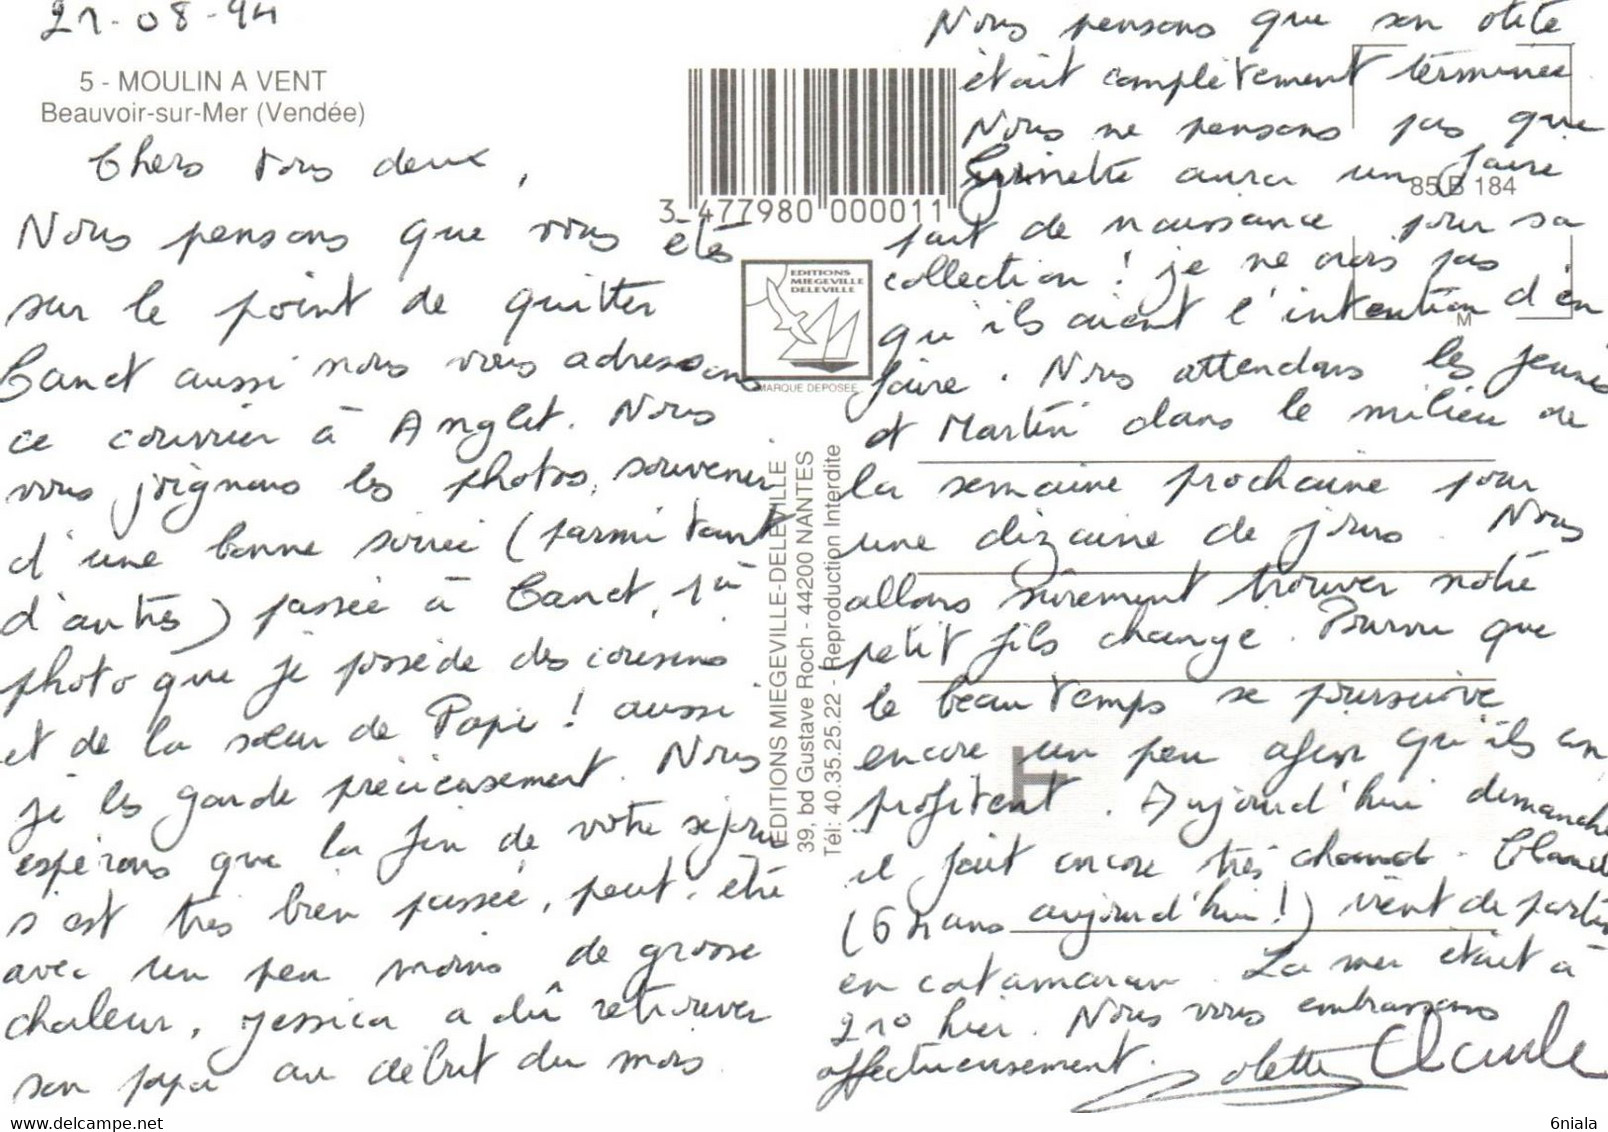 21-08-94
5 - MOULIN A VENT
Beauvoir-sur-Mer (Vendée)
Chers vous deux,
Nous pensons que vous êtes
sur le point de quitter
Canet aussi nous vous adressons
ce courrier à Anglet. Nous
vous joignons les photos, souvenir
d'une bonne soirée (parmi tant
d'autres) passée à Canet, 1ère
photo que je possède des cousins
et de la sœur de Papi ! aussi
je les garde précieusement. Nous
espérons que la fin de votre séjour
s'est très bien passée, peut-être
avec un peu moins de grosse
chaleur, Jessica a dû retrouver
son papa au début du mois.
3 477980 000011
EDITIONS
MIEGEVILLE
DELEVILLE
MARQUE DEPOSEE
EDITIONS MIEGEVILLE-DELEVILLE
39, bd Gustave Roch - 44200 NANTES
Tél: 40.35.25.22 - Reproduction Interdite
85 B 184
M
Nous pensons que son otite
était complètement terminée
Nous ne pensons pas que
aura un faire
part de naissance pour sa
collection ! je ne crois pas
qu'ils aient l'intention d'en
faire. Nous attendons les jeunes
et Martin dans le milieu de
la semaine prochaine pour
une dizaine de jours. Nous
allons sûrement trouver notre
petit fils changé. Pourvu que
le beau temps se poursuive
encore un peu afin qu'ils en
profitent. Aujourd'hui dimanche
il fait encore très chaud. Claude
(64 ans aujourd'hui !) vient de partir
en catamaran. La mer était à
21° hier. Nous vous embrassons
affectueusement.
Colette Claude
6niala